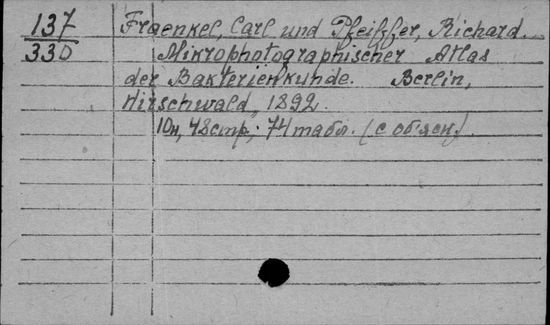 137
330
Fraenkel, Carl und Pfeiffer, Richard.
Mikrophotographischer Atlas
der Bakterienkunde. Berlin,
Hirschwald, 1892.
10н, 48стр.; 74 табл. (с объясн.)